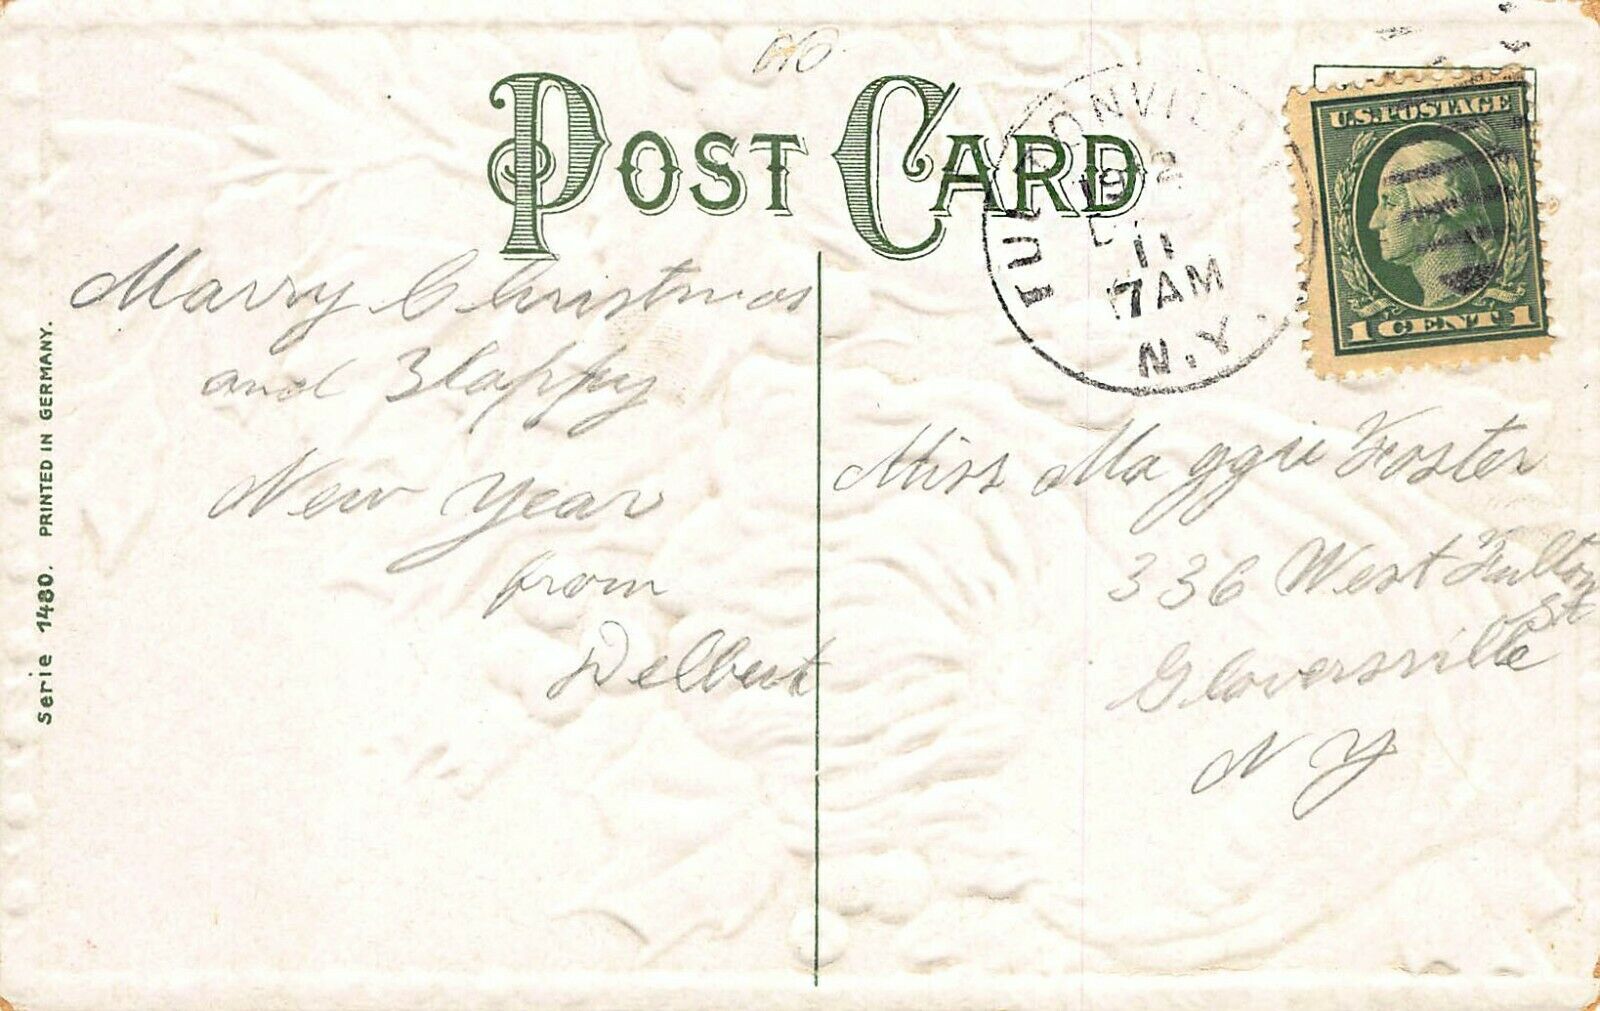 POST CARD
U.S. POSTAGE
1 CENT 1
1912
11
7 AM
N.Y.
Marry Christmas
and Happy
New Year
from
Delbert
Miss Maggie Foster
336 West Fulton
St
Gloversville
N Y
Serie 1480. PRINTED IN GERMANY.